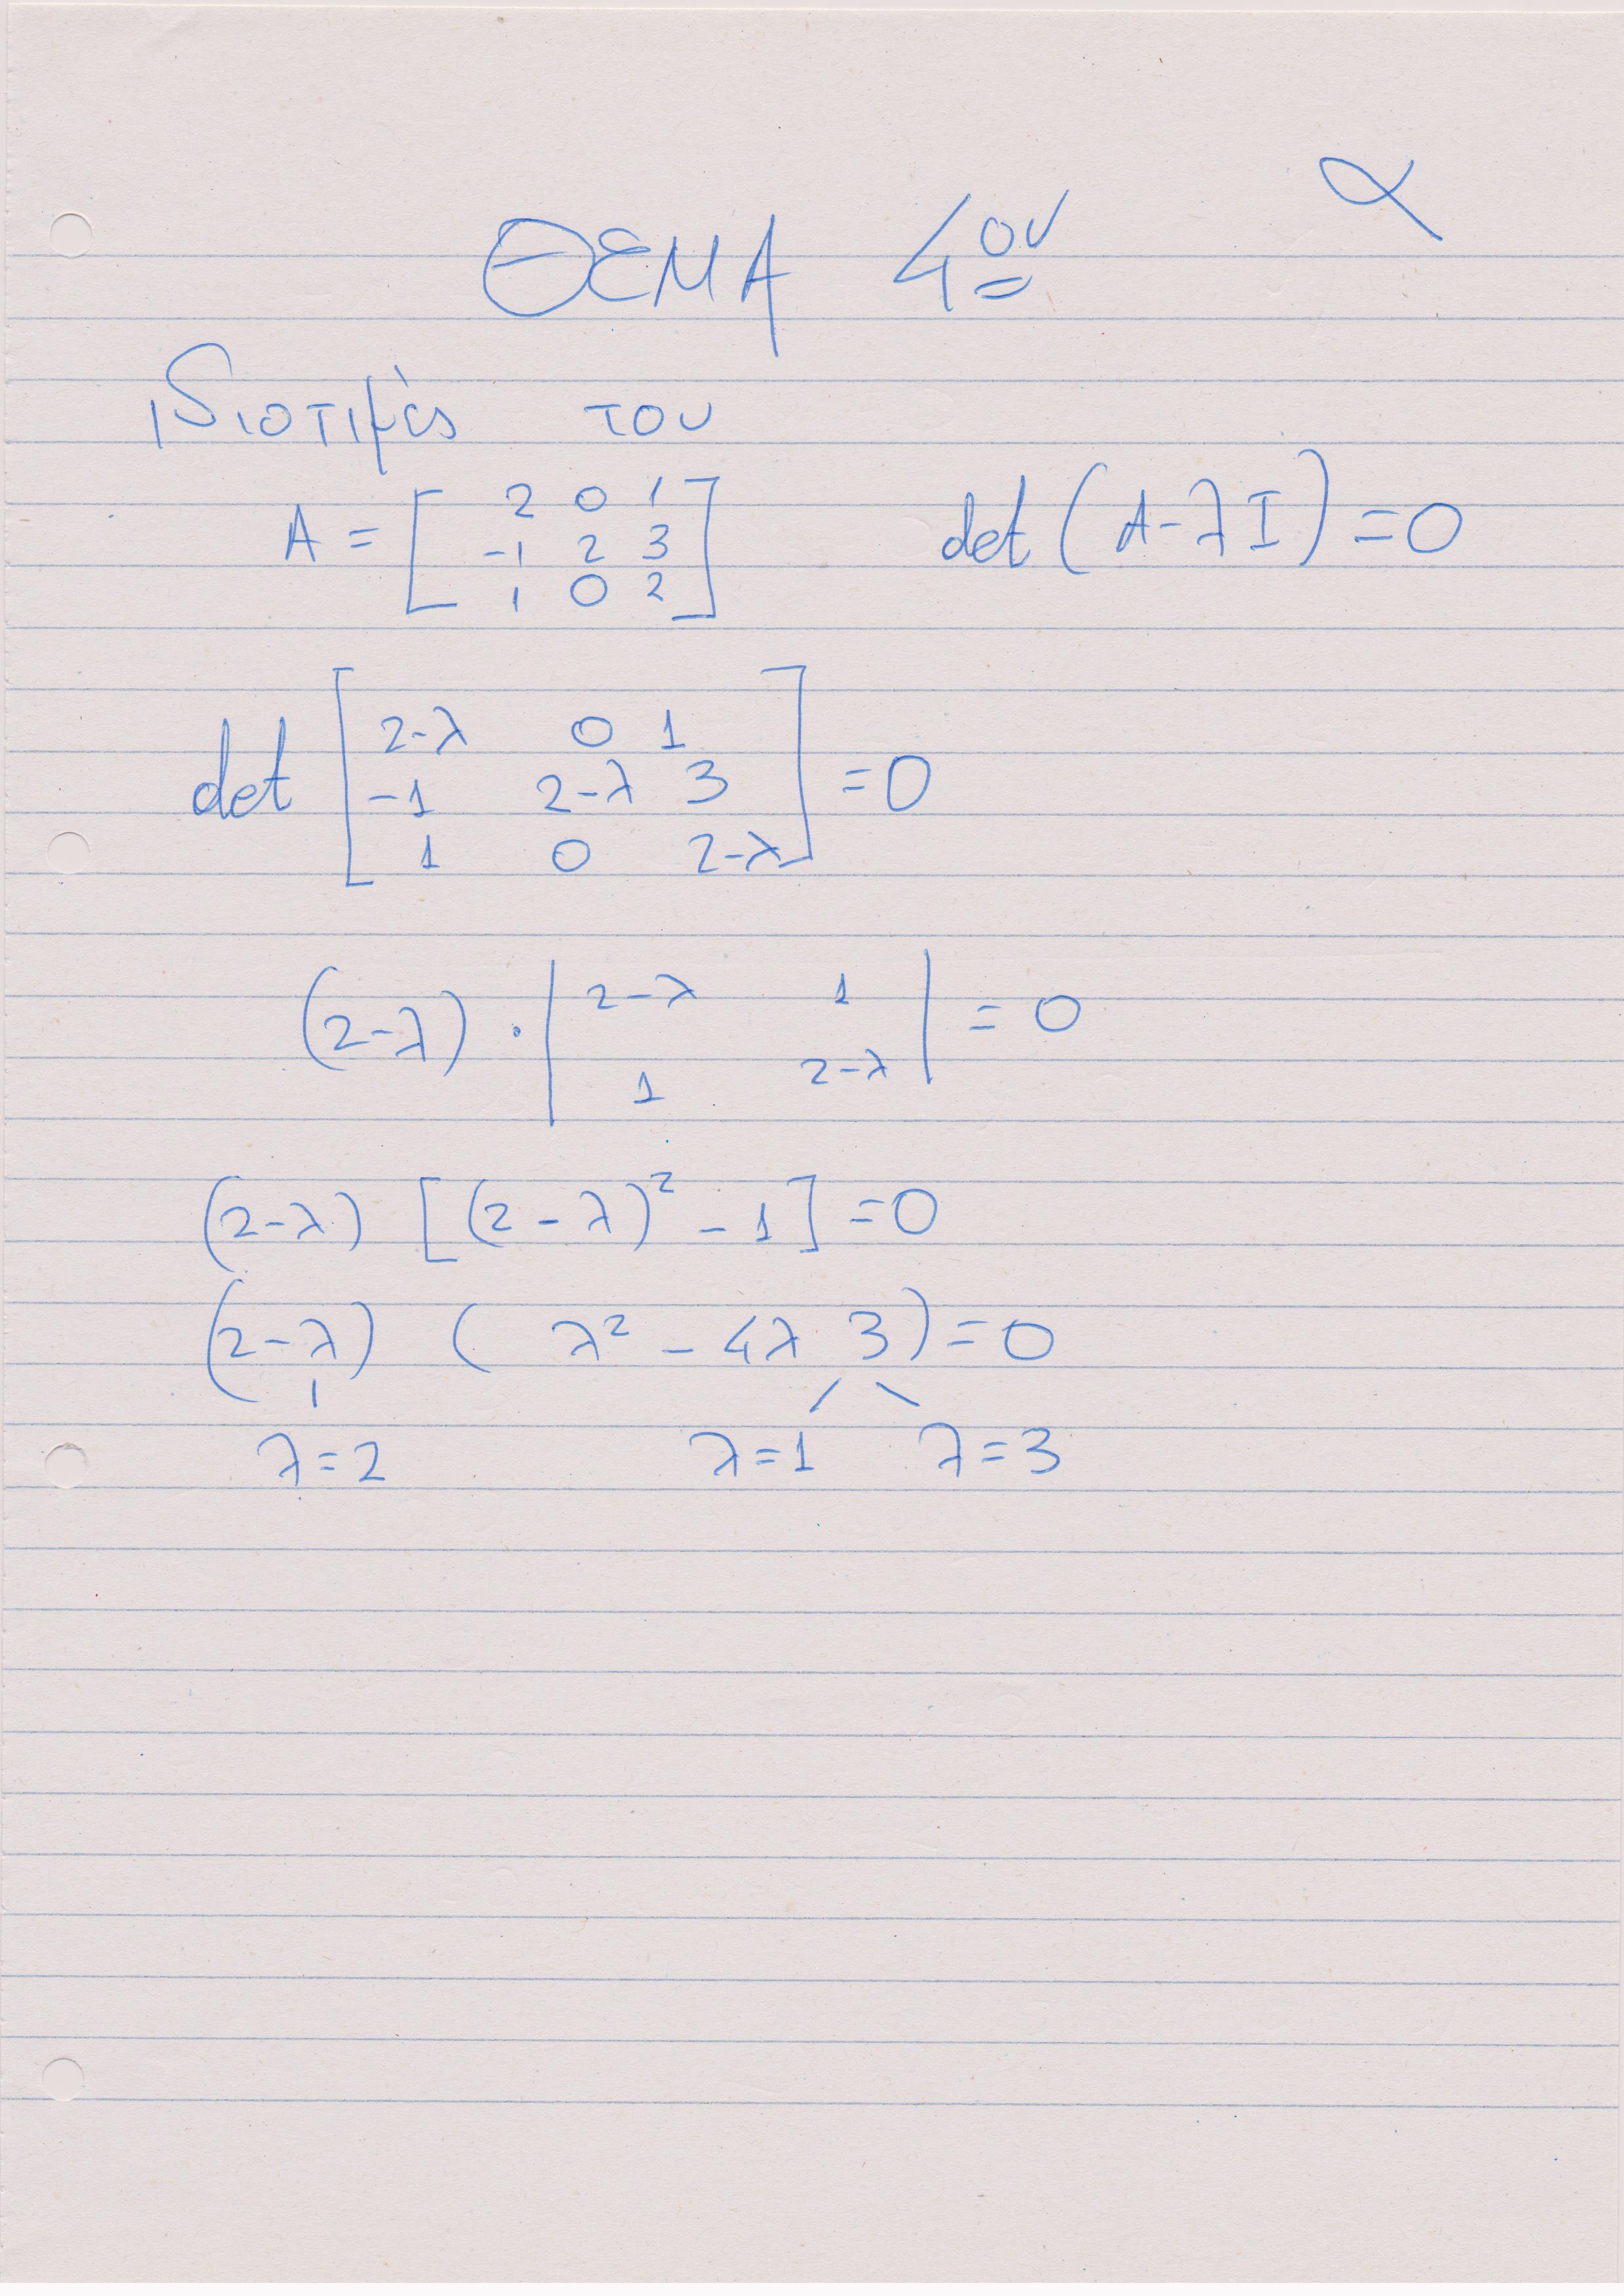 α
ΘΕΜΑ 4ου
ιδιοτιμές του
A = [ 2 0 1 det (A-λI) = 0
-1 2 3
1 0 2 ]
det [ 2-λ 0 1
-1 2-λ 3 = 0
1 0 2-λ ]
(2-λ) · | 2-λ 1 | = 0
1 2-λ
(2-λ) [(2-λ)² - 1] = 0
(2-λ) ( λ² - 4λ 3) = 0
λ=2 λ=1 λ=3